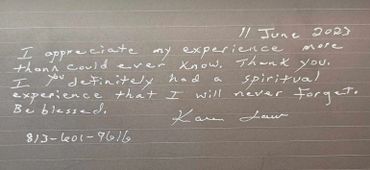 11 June 2023
I appreciate my experience more
thann could ever know. Thank you.
I you definitely had a spiritual
experience that I will never forget.
Be blessed.
Karen
813-601-7616